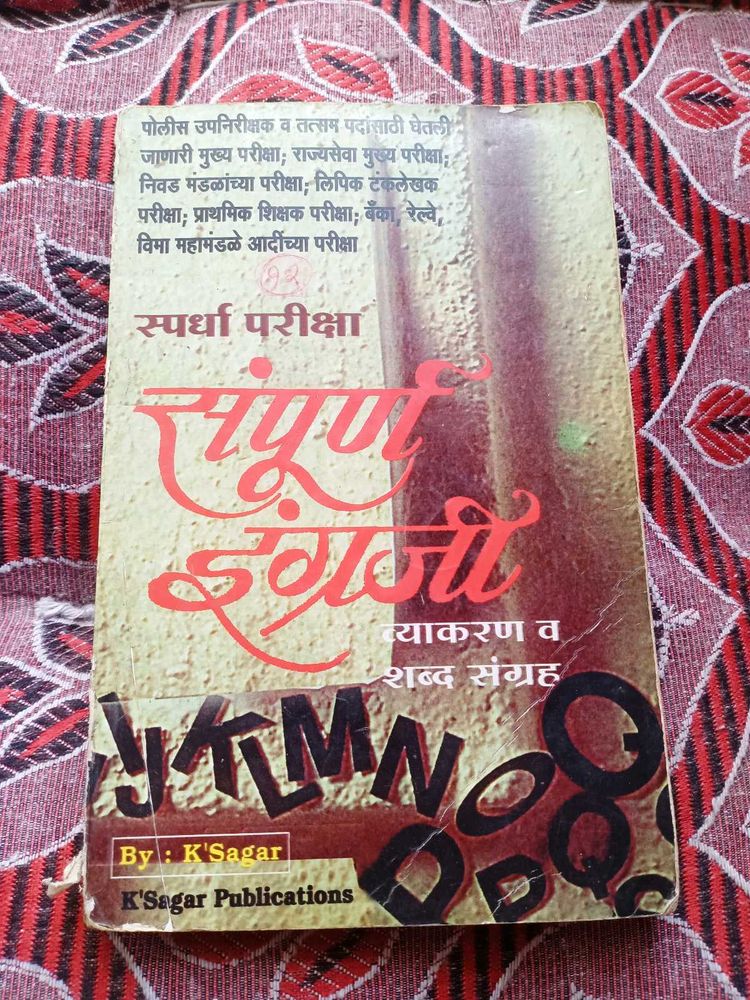 पोलीस उपनिरीक्षक व तत्सम पदांसाठी घेतली
जाणारी मुख्य परीक्षा; राज्यसेवा मुख्य परीक्षा;
निवड मंडळांच्या परीक्षा; लिपिक टंकलेखक
परीक्षा; प्राथमिक शिक्षक परीक्षा; बँका, रेल्वे,
विमा महामंडळे आदींच्या परीक्षा
९३
स्पर्धा परीक्षा
संपूर्ण
इंग्रजी
व्याकरण व
शब्द संग्रह
I J K L M N O Q
By : K'Sagar
D P Q
K'Sagar Publications